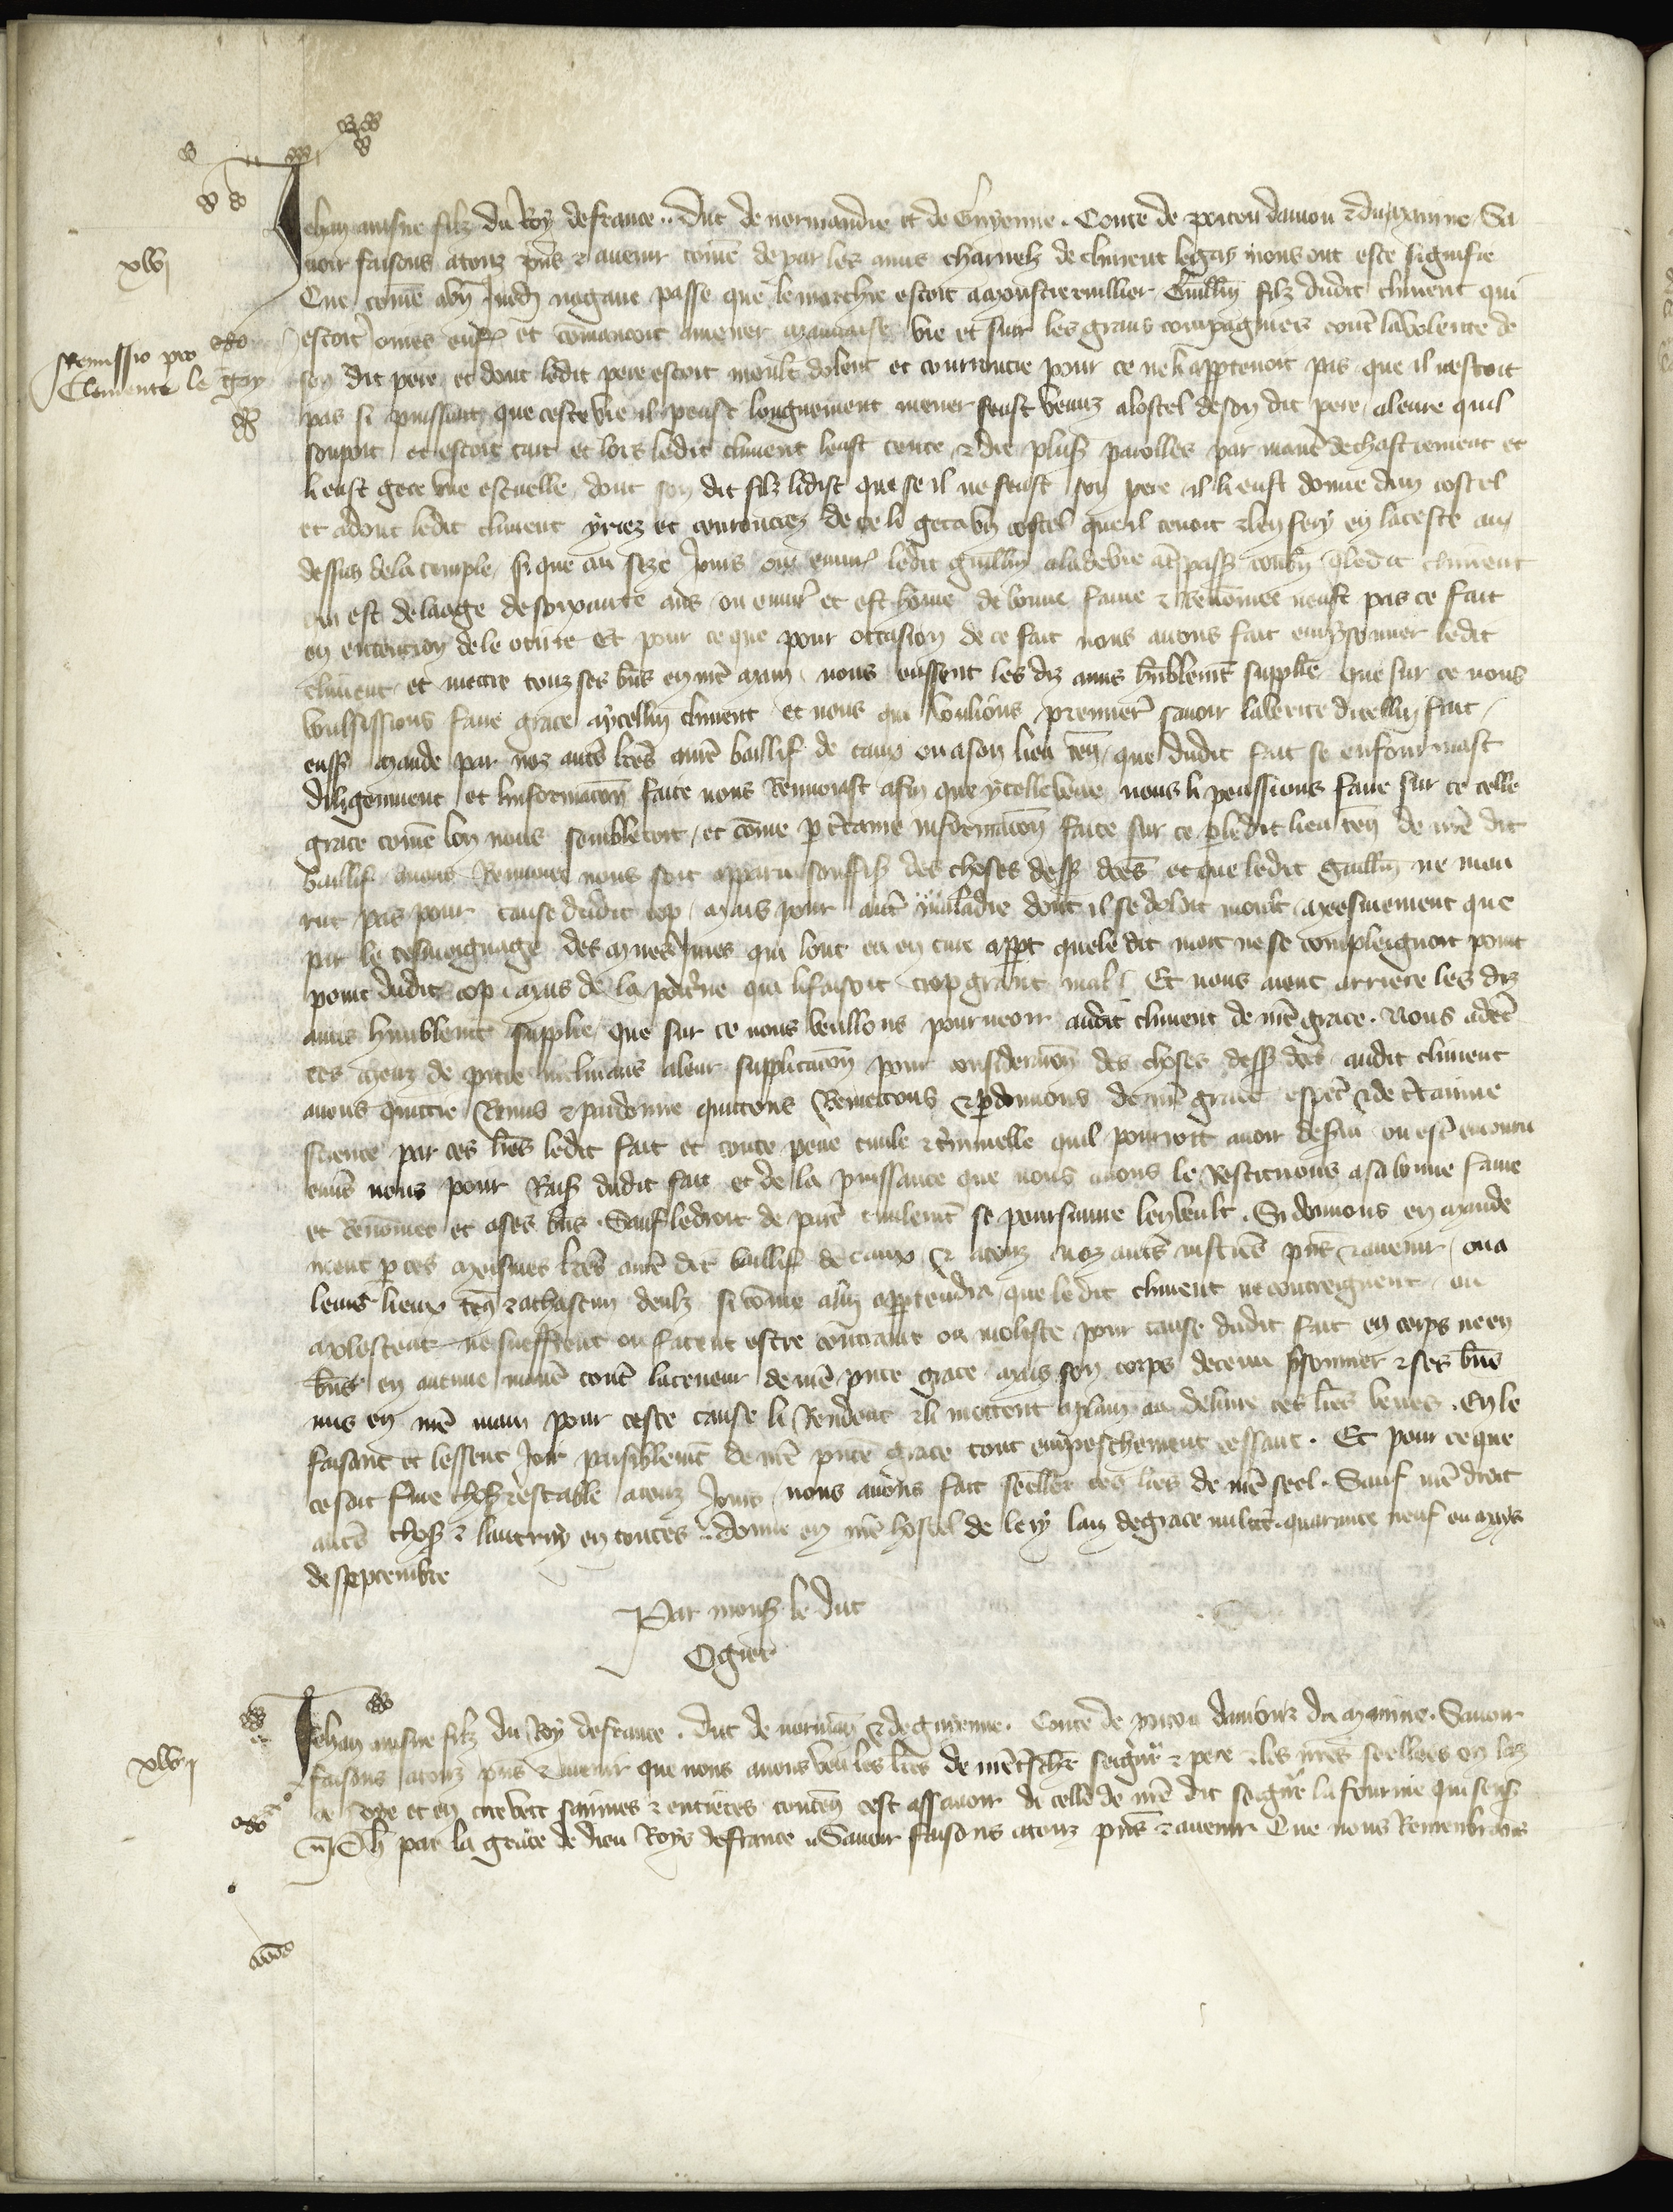 xlvj
Remissio pro
Clemente le Gay
Jehan ainsne filz du Roy de france .. Duc de normandie et de Guyenne . Conte de poitou danjou & du Maine Sa
voir faisons a touz pñs & avenir come de par les amis charnelz de climent le gay nous ont este signifie
Que come a un jeudi nagaire passe que le marchie estoit a moustiervillier Guillm filz dudit climent qui
estoit et comancoit a mener mauvaise vie et suir les grans compagnies cont la volente de
son dit pere et dont ledit pere estoit moult dolent et courroucie pour ce ne li appartenoit pas que il nestoit
pas si puissant que ceste vie il peust longuement mener feust venuz a lostel de son dit pere a leure quil
soupoit et estoit tart et lors ledit climent leust tence & dit plus parolles par manie de chastiement et
li eust gete une escuelle dont son dit filz li dist que se il ne feust son pere il li eust donne dun costel
et adont ledit climent yriez et courrouciez de ce li geta un costel que il tenoit & len fery en la teste au
dessus de la temple si que au seze jours ou envir ledit guillm ala de vie a tpass combn q ledit climent
qui est de laage de soixante ans ou envir et est home de bonne fame & renomee neust pas ce fait
en entencion de le occirre Et pour ce que pour occasion de ce fait nous avons fait emprisonner ledit
climent et mettre touz ses bns en nre main nous eussent les diz amis humblemt supplie que sur ce nous
voulsissions faire grace a ycelluy climent et nous qui voulions premier savoir la verite dicelluy fait
euss mande par noz autres lres a nre baillif de caux ou a son lieu ten que dudit fait se enfourmast
diligemment et linformacon faite nous renvoiast afin que ycelle veue nous li peussions faire sur ce celle
grace come bon nous sembleroit et come p ctaine informacon faite sur ce p ledit lieu ten de nre dit
baillif a nous renvoiee nous soit apparu souffis des choses dess dtes et que ledit Guillm ne mou
rut pas pour cause dudit cop mais pour aut maladie dont il se doloit moult meesmement que
par le tesmoignage des mires jures qui lont eu en cure appt que le dit mort ne se compleignoit point
point dudit cop mais de la poitrine qui li faisoit trop grant mal Et nous aient arriere les diz
amis humblemt supplie que sur ce nous veullons pourveoir audit climent de nre grace . Nous a
ces meuz de pitie inclinans a leur supplicacon pour consideracon des choses dess dtes audit climent
avons quittie remis & pardonne quittons remettons & pdonnons de nre grace espec & de ctainne
science par ces lres ledit fait et toute peine civile & criminelle quil pourroit avoir desui ou est encouru
envs nous pour rais dudit fait et de la puissance que nous avons le restituons a sa bonne fame
et renomee et a ses bns . Sauf le droit de ptie civilemt se poursuivre len veult . Si donnons en mande
ment p ces meismes lres a nre dit baillif de caux & a touz noz autres justiciers pñs & avenir ou a
leurs lieux ten & a chascun deulz si come a luy appartendra que ledit climent ne contreignent ou
molestent ne sueffrent ou facent estre contraint ou moleste pour cause dudit fait en corps ne en
bns en aucune manie cont la teneur de nre pnte grace mais son corps detenu prisonnier & ses bns
mis en nre main pour ceste cause li rendent & li mettent a plain au delivre ces lres veues . En le
faisant et lessent joir paisiblemt de nre pnte grace tout empeschement cessant . Et pour ce que
ce soit ferme chose & estable a touz jours nous avons fait seeller ces lres de nre seel . Sauf nre droit
autres choses & lautruy en toutes .. Donne en nre hostel de lery lan de grace mil ccc quarante neuf ou mois
de septembre
Par mons le duc
Ogier
xlvij
Jehan ainsne filz du Roy de france . Duc de normand & de guyenne . Conte de poitou danjou & du Maine . Savoir
faisons a touz pñs & avenir que nous avons veu les lres de nre tchier seignr & pere & les nres seellees en laz
de soye et en cire vert sainnes & entieres conten cest assavoir de celle de nre dit seignr la fourme qui sens
Ph par la grace de dieu Roys de france .. Savoir faisons a touz pñs & avenir Que nous Remembrans